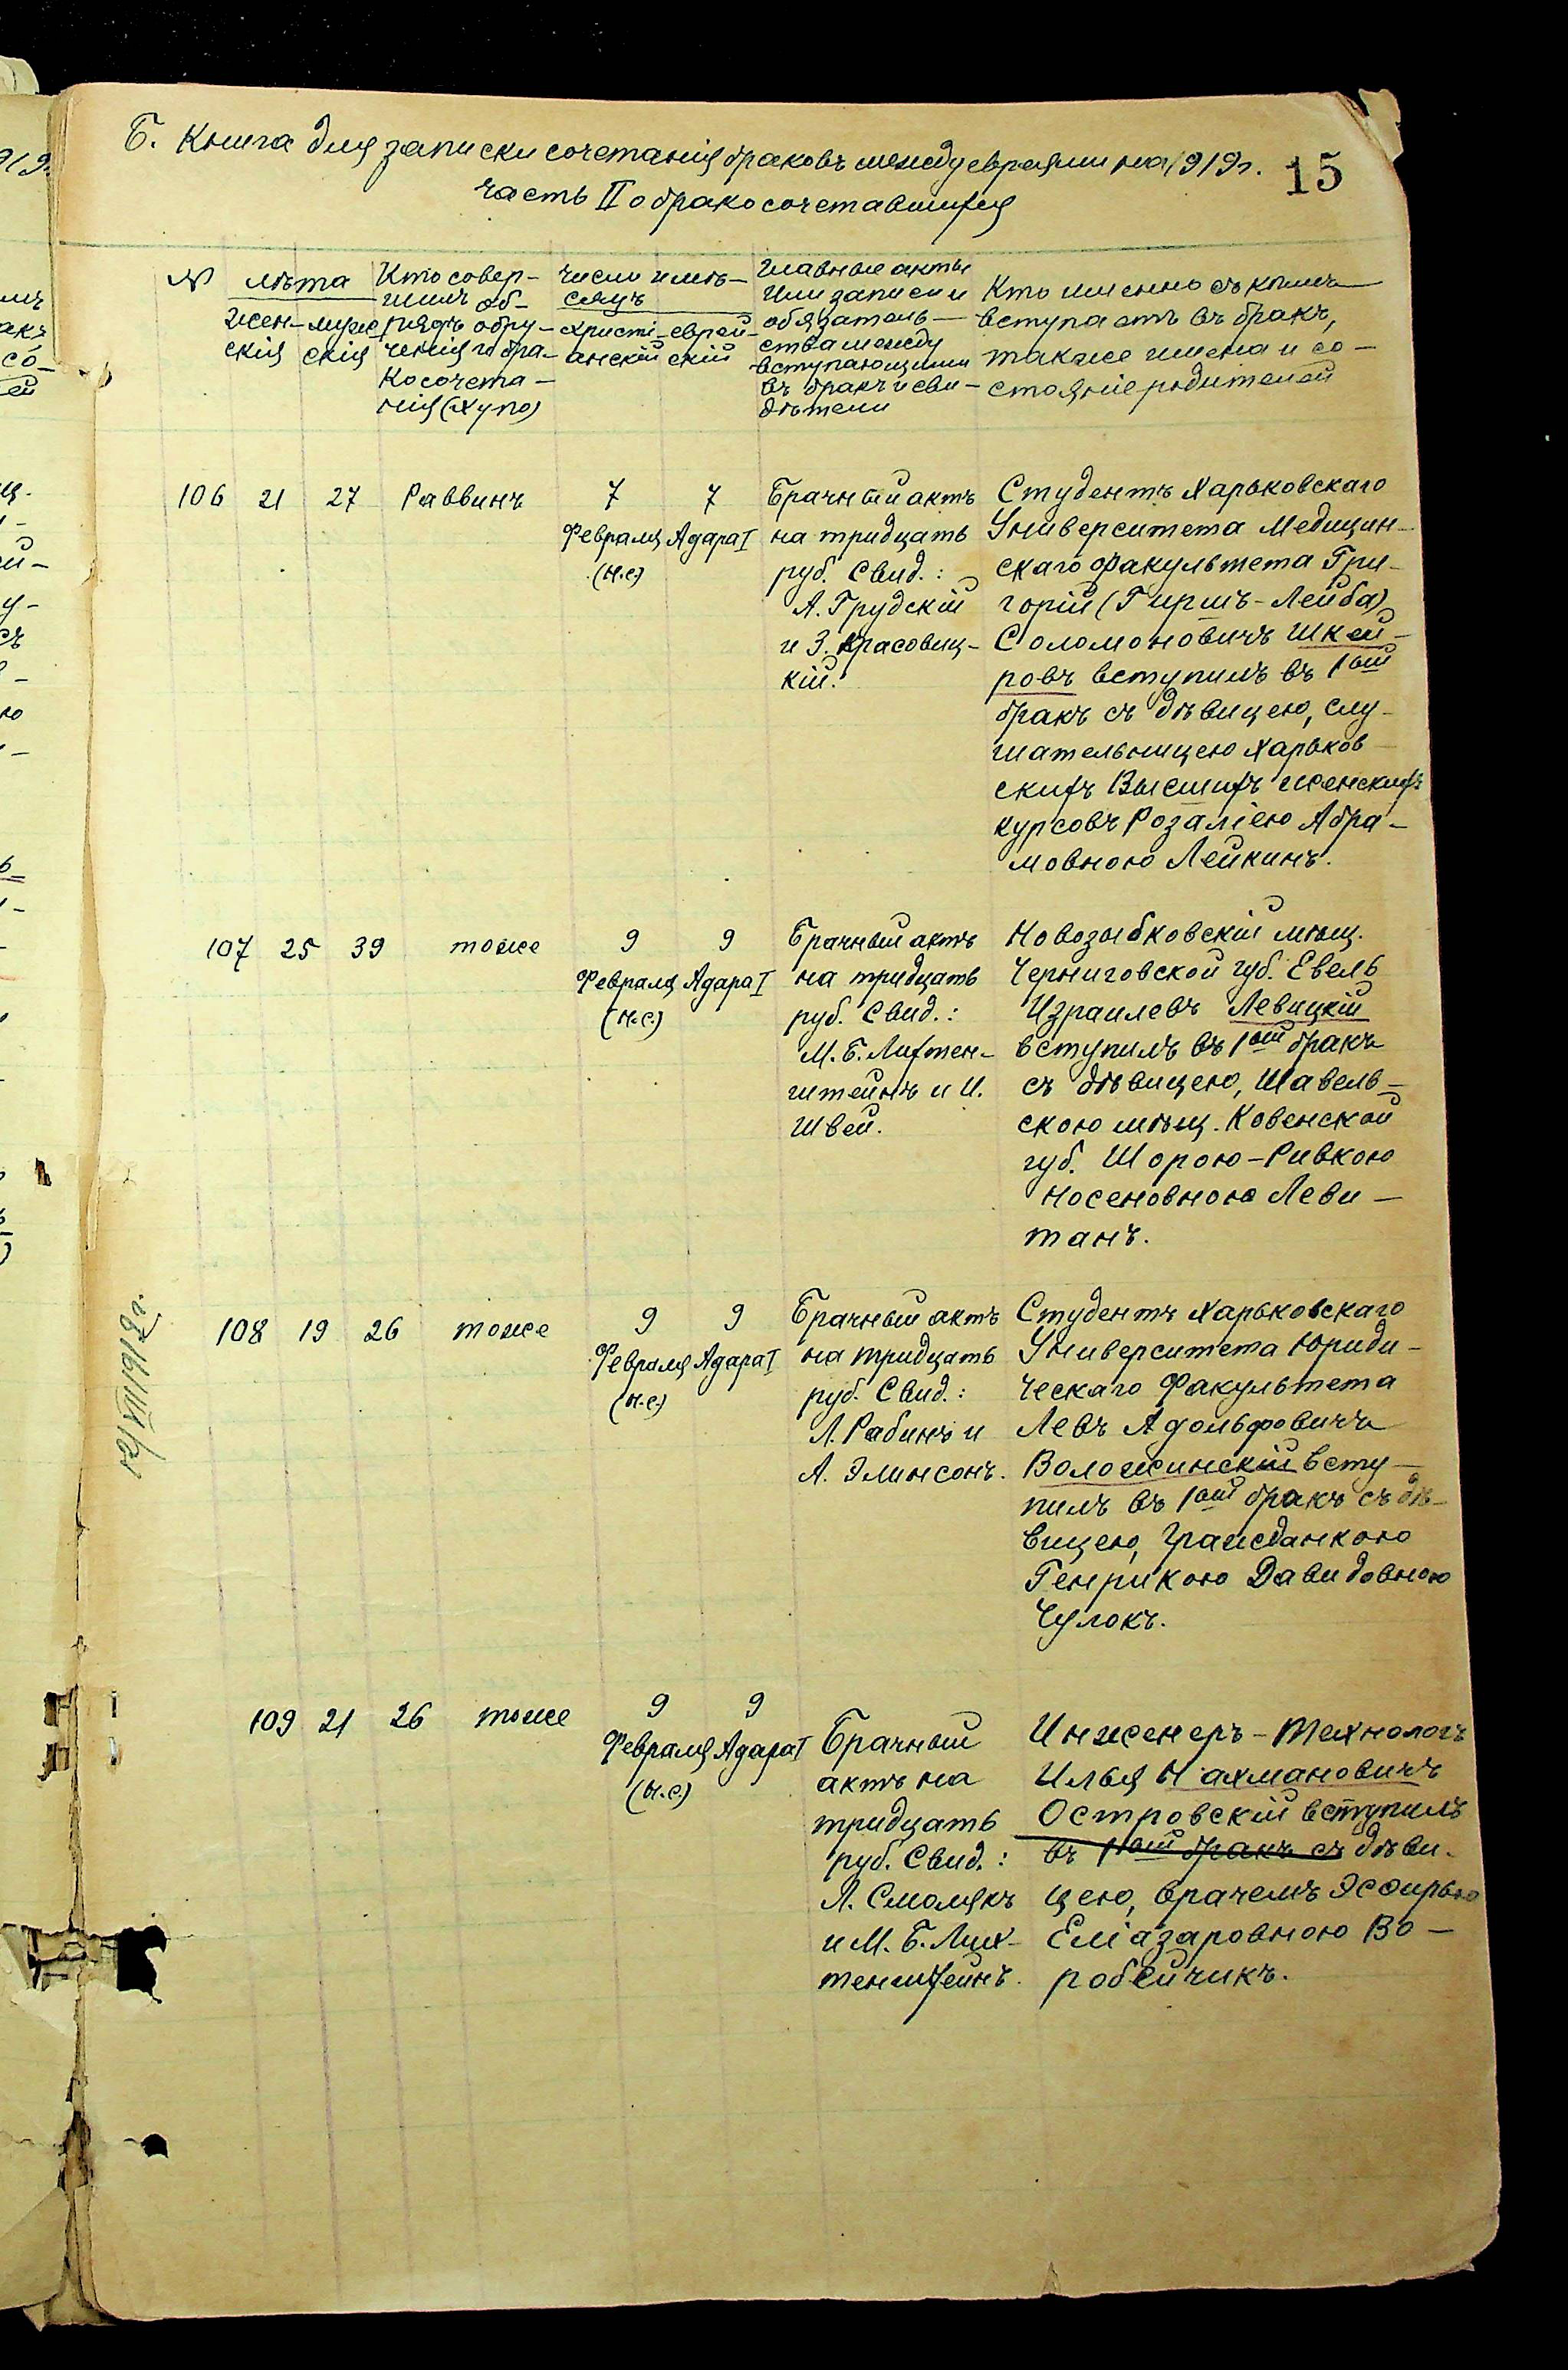 Б. Книга для записки сочетанія браковъ между евреями на 1919 г. 15
часть II о бракосочетавшихся
№
лѣта
жен-
скія
муже
скія
Кто совер-
шилъ об-
рядъ обру-
ченія и бра-
косочета-
нія (Хупо)
Число и мѣ-
сяцъ
христі-
анскій
еврей-
скій
Главные акты
или записи и
обязатель-
ства между
вступающими
въ бракъ и сви-
дѣтели
Кто именно съ кѣмъ
вступаетъ въ бракъ,
также имена и со-
стояніе родителей
106 21 27 Раввинъ
7
Февраля
(н.с.)
7
Адара I
Брачный актъ
на тридцать
руб. Свид.:
А. Грудскій
и З. Красовиц-
кій.
Студентъ Харьковскаго
Университета Медицин-
скаго факультета Гри-
горій (Гиршъ-Лейба)
Соломоновичъ Шкей-
ровъ вступилъ въ 1ый
бракъ съ дѣвицею, слу-
шательницею Харьков-
скихъ Высшихъ женскихъ
курсовъ Розаліею Абра-
мовною Лейкинъ.
107 25 39 тоже
9
Февраля
(н.с.)
9
Адара I
Брачный актъ
на тридцать
руб. Свид.:
М. Б. Лихтен-
штейнъ и И.
Швей.
Новозыбковскій мѣщ.
Черниговской губ. Евель
Израилевъ Левицкій
вступилъ въ 1ый бракъ
съ дѣвицею, Шавель-
скою мѣщ. Ковенской
губ. Шорою-Ривкою
Носеновною Леви-
танъ.
12/VIII 1919 г.
108 19 26 тоже
9
Февраля
(н.с.)
9
Адара I
Брачный актъ
на тридцать
руб. Свид.:
Л. Рабинъ и
А. Элинсонъ.
Студентъ Харьковскаго
Университета Юриди-
ческаго Факультета
Левъ Адольфовичъ
Воложинскій всту-
пилъ въ 1ый бракъ съ дѣ-
вицею, гражданкою
Генрикою Давидовною
Чулокъ.
109 21 26 тоже
9
Февраля
(н.с.)
9
Адара I
Брачный
актъ на
тридцать
руб. Свид.:
Л. Смолякъ
и М. Б. Лих-
тенштейнъ.
Инженеръ-Технологъ
Илья Нахмановичъ
Островскій вступилъ
въ 1ый бракъ съ дѣви-
цею, врачемъ Эсфирью
Еліазаровною Во-
робейчикъ.